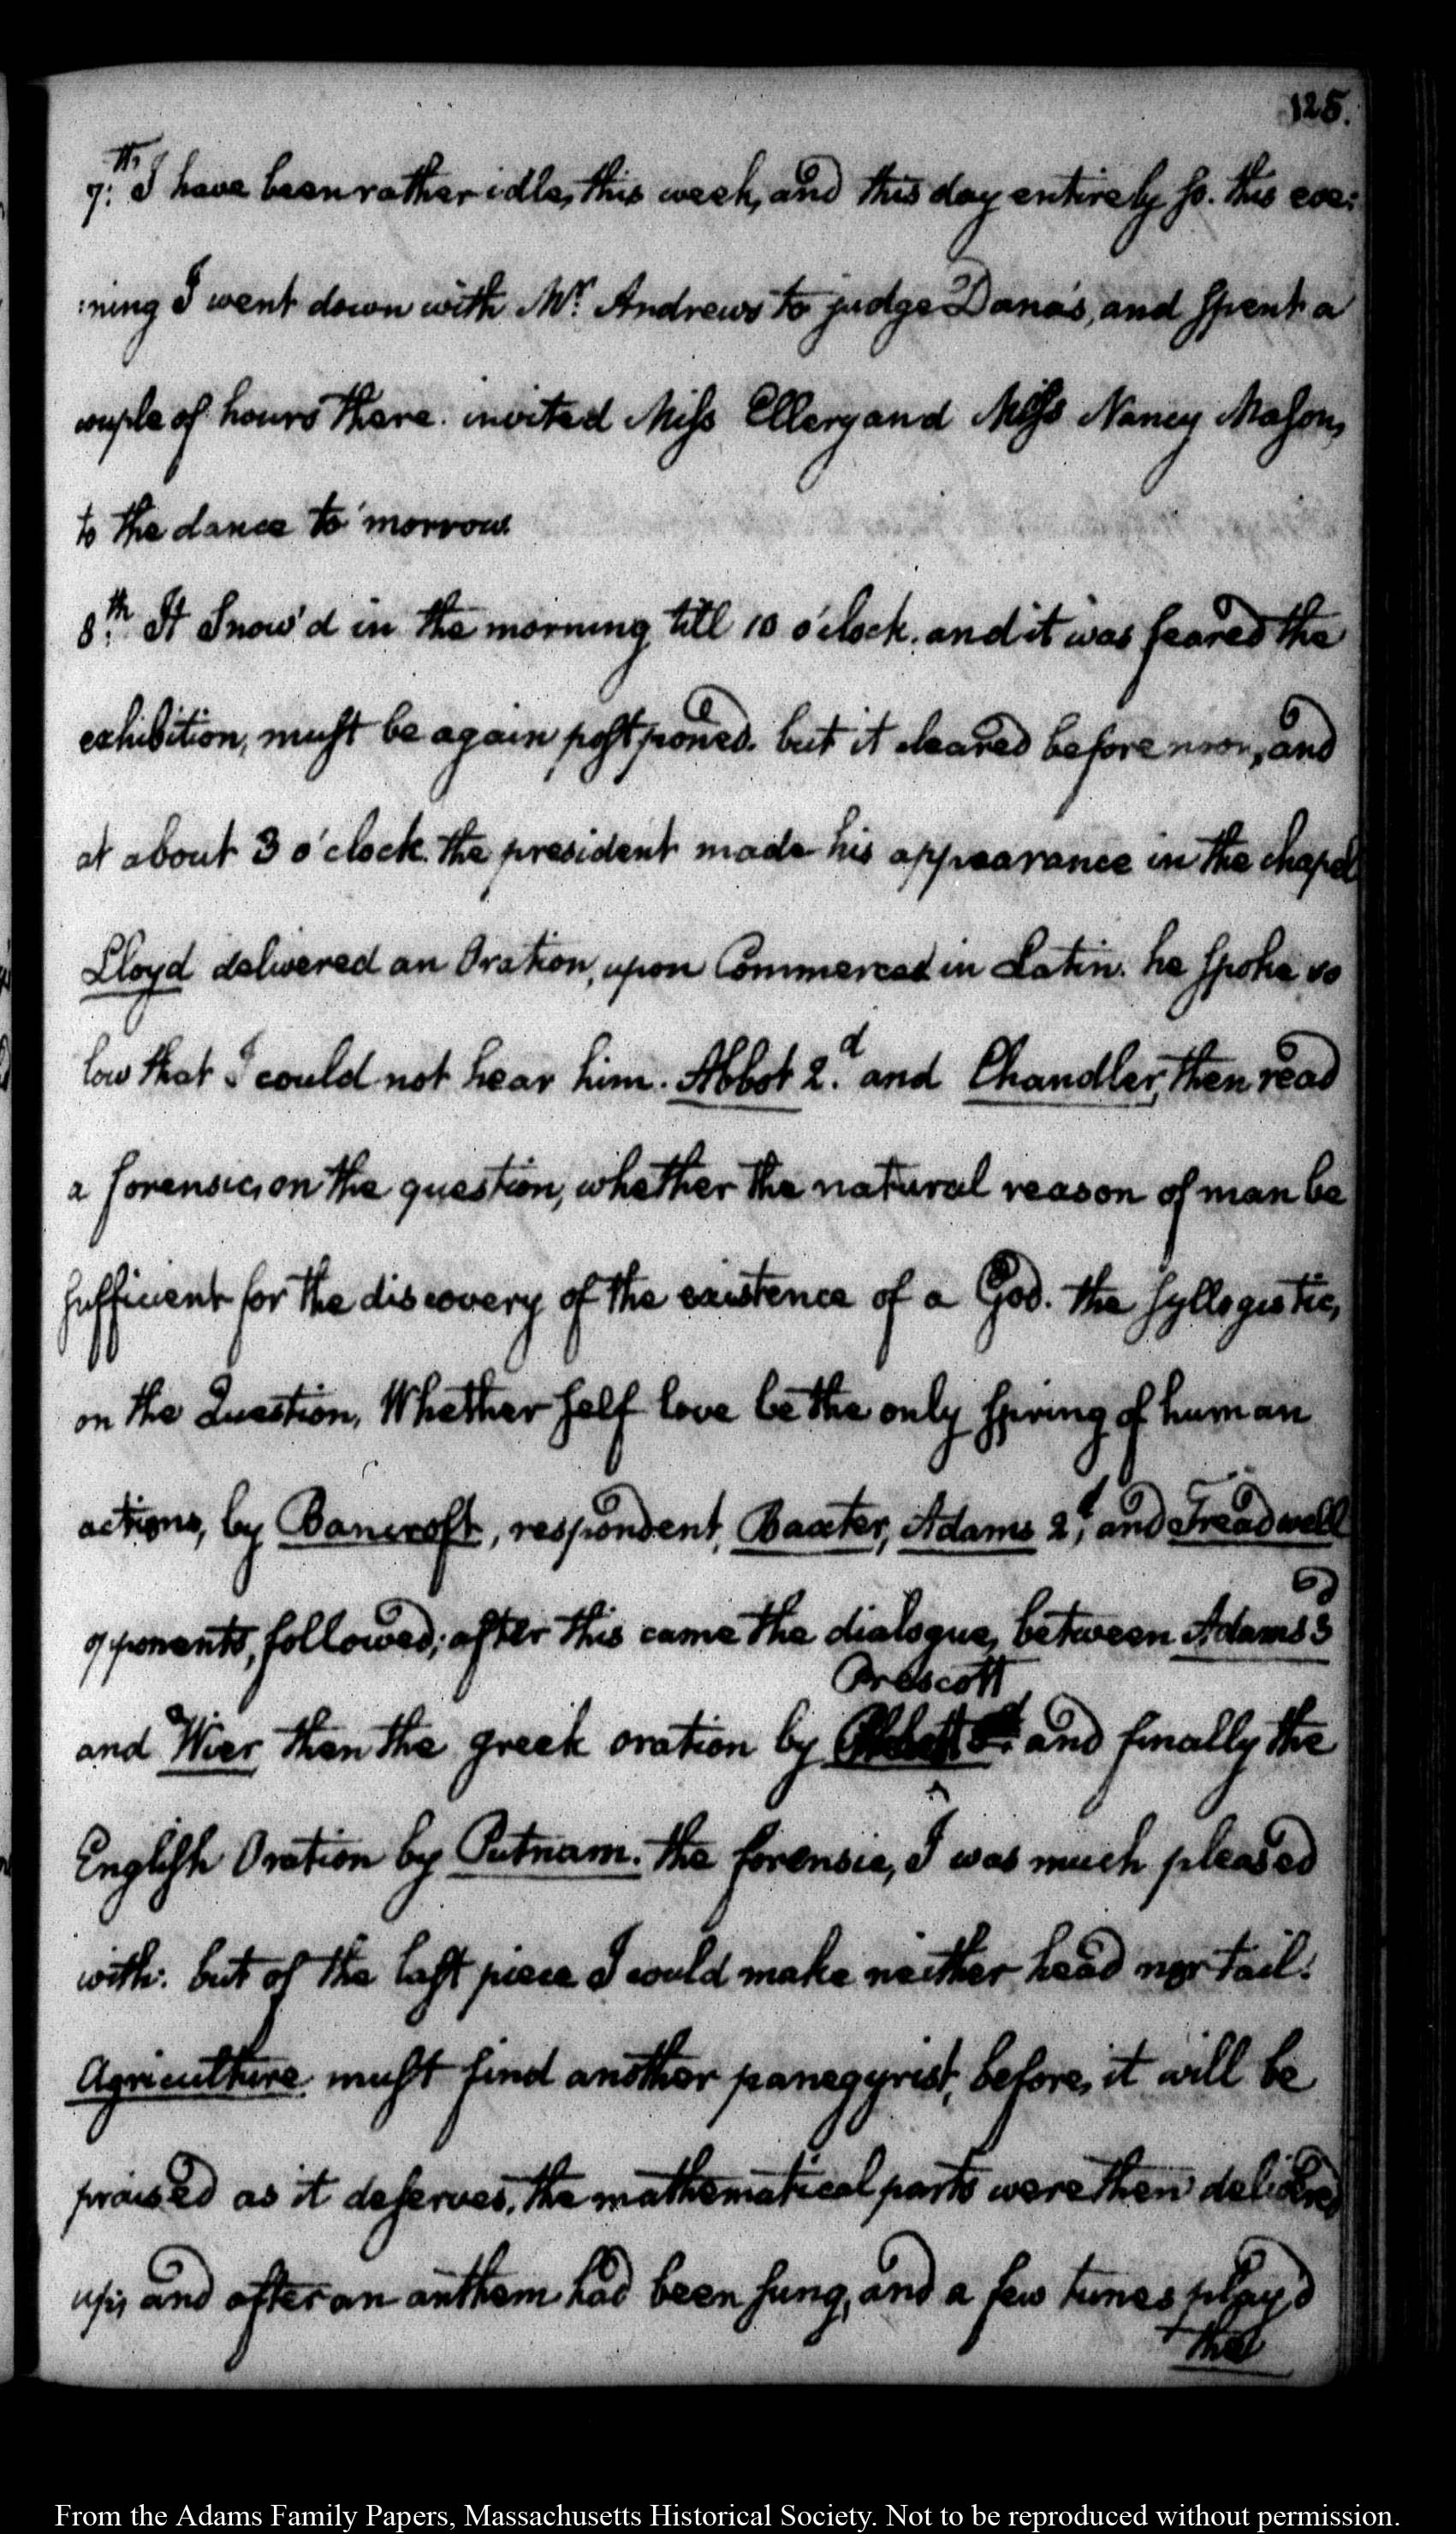 125.
7th: I have been rather idle, this week, and this day entirely so. this eve:
:ning I went down with Mr. Andrews to judge Dana's, and spent a
couple of hours there. invited Miss Ellery and Miss Nancy Mason,
to the dance to'morrow.
8th: It Snow'd in the morning till 10 o'clock. and it was feared the
exhibition, must be again postponed. but it cleared before noon, and
at about 3 o'clock. the president made his appearance in the chapel
Lloyd delivered an Oration, upon Commerce in Latin. he spoke so
low that I could not hear him. Abbot 2d. and Chandler, then read
a forensic, on the question, whether the natural reason of man be
sufficient for the discovery of the existence of a God. the syllogistic,
on the Question, Whether self love be the only spring of human
actions, by Bancroft, respondent, Baxter, Adams 2d, and Treadwell
opponents, followed; after this came the dialogue, between Adams 3d
Prescott
and Wier, then the greek oration by and finally the
English Oration by Putnam. the forensic, I was much pleased
with. but of the last piece I could make neither head nor tail.
Agriculture must find another panegyrist, before, it will be
praised as it deserves. the mathematical parts were then delivered
up; and after an anthem had been sung, and a few tunes play'd
the
From the Adams Family Papers, Massachusetts Historical Society. Not to be reproduced without permission.